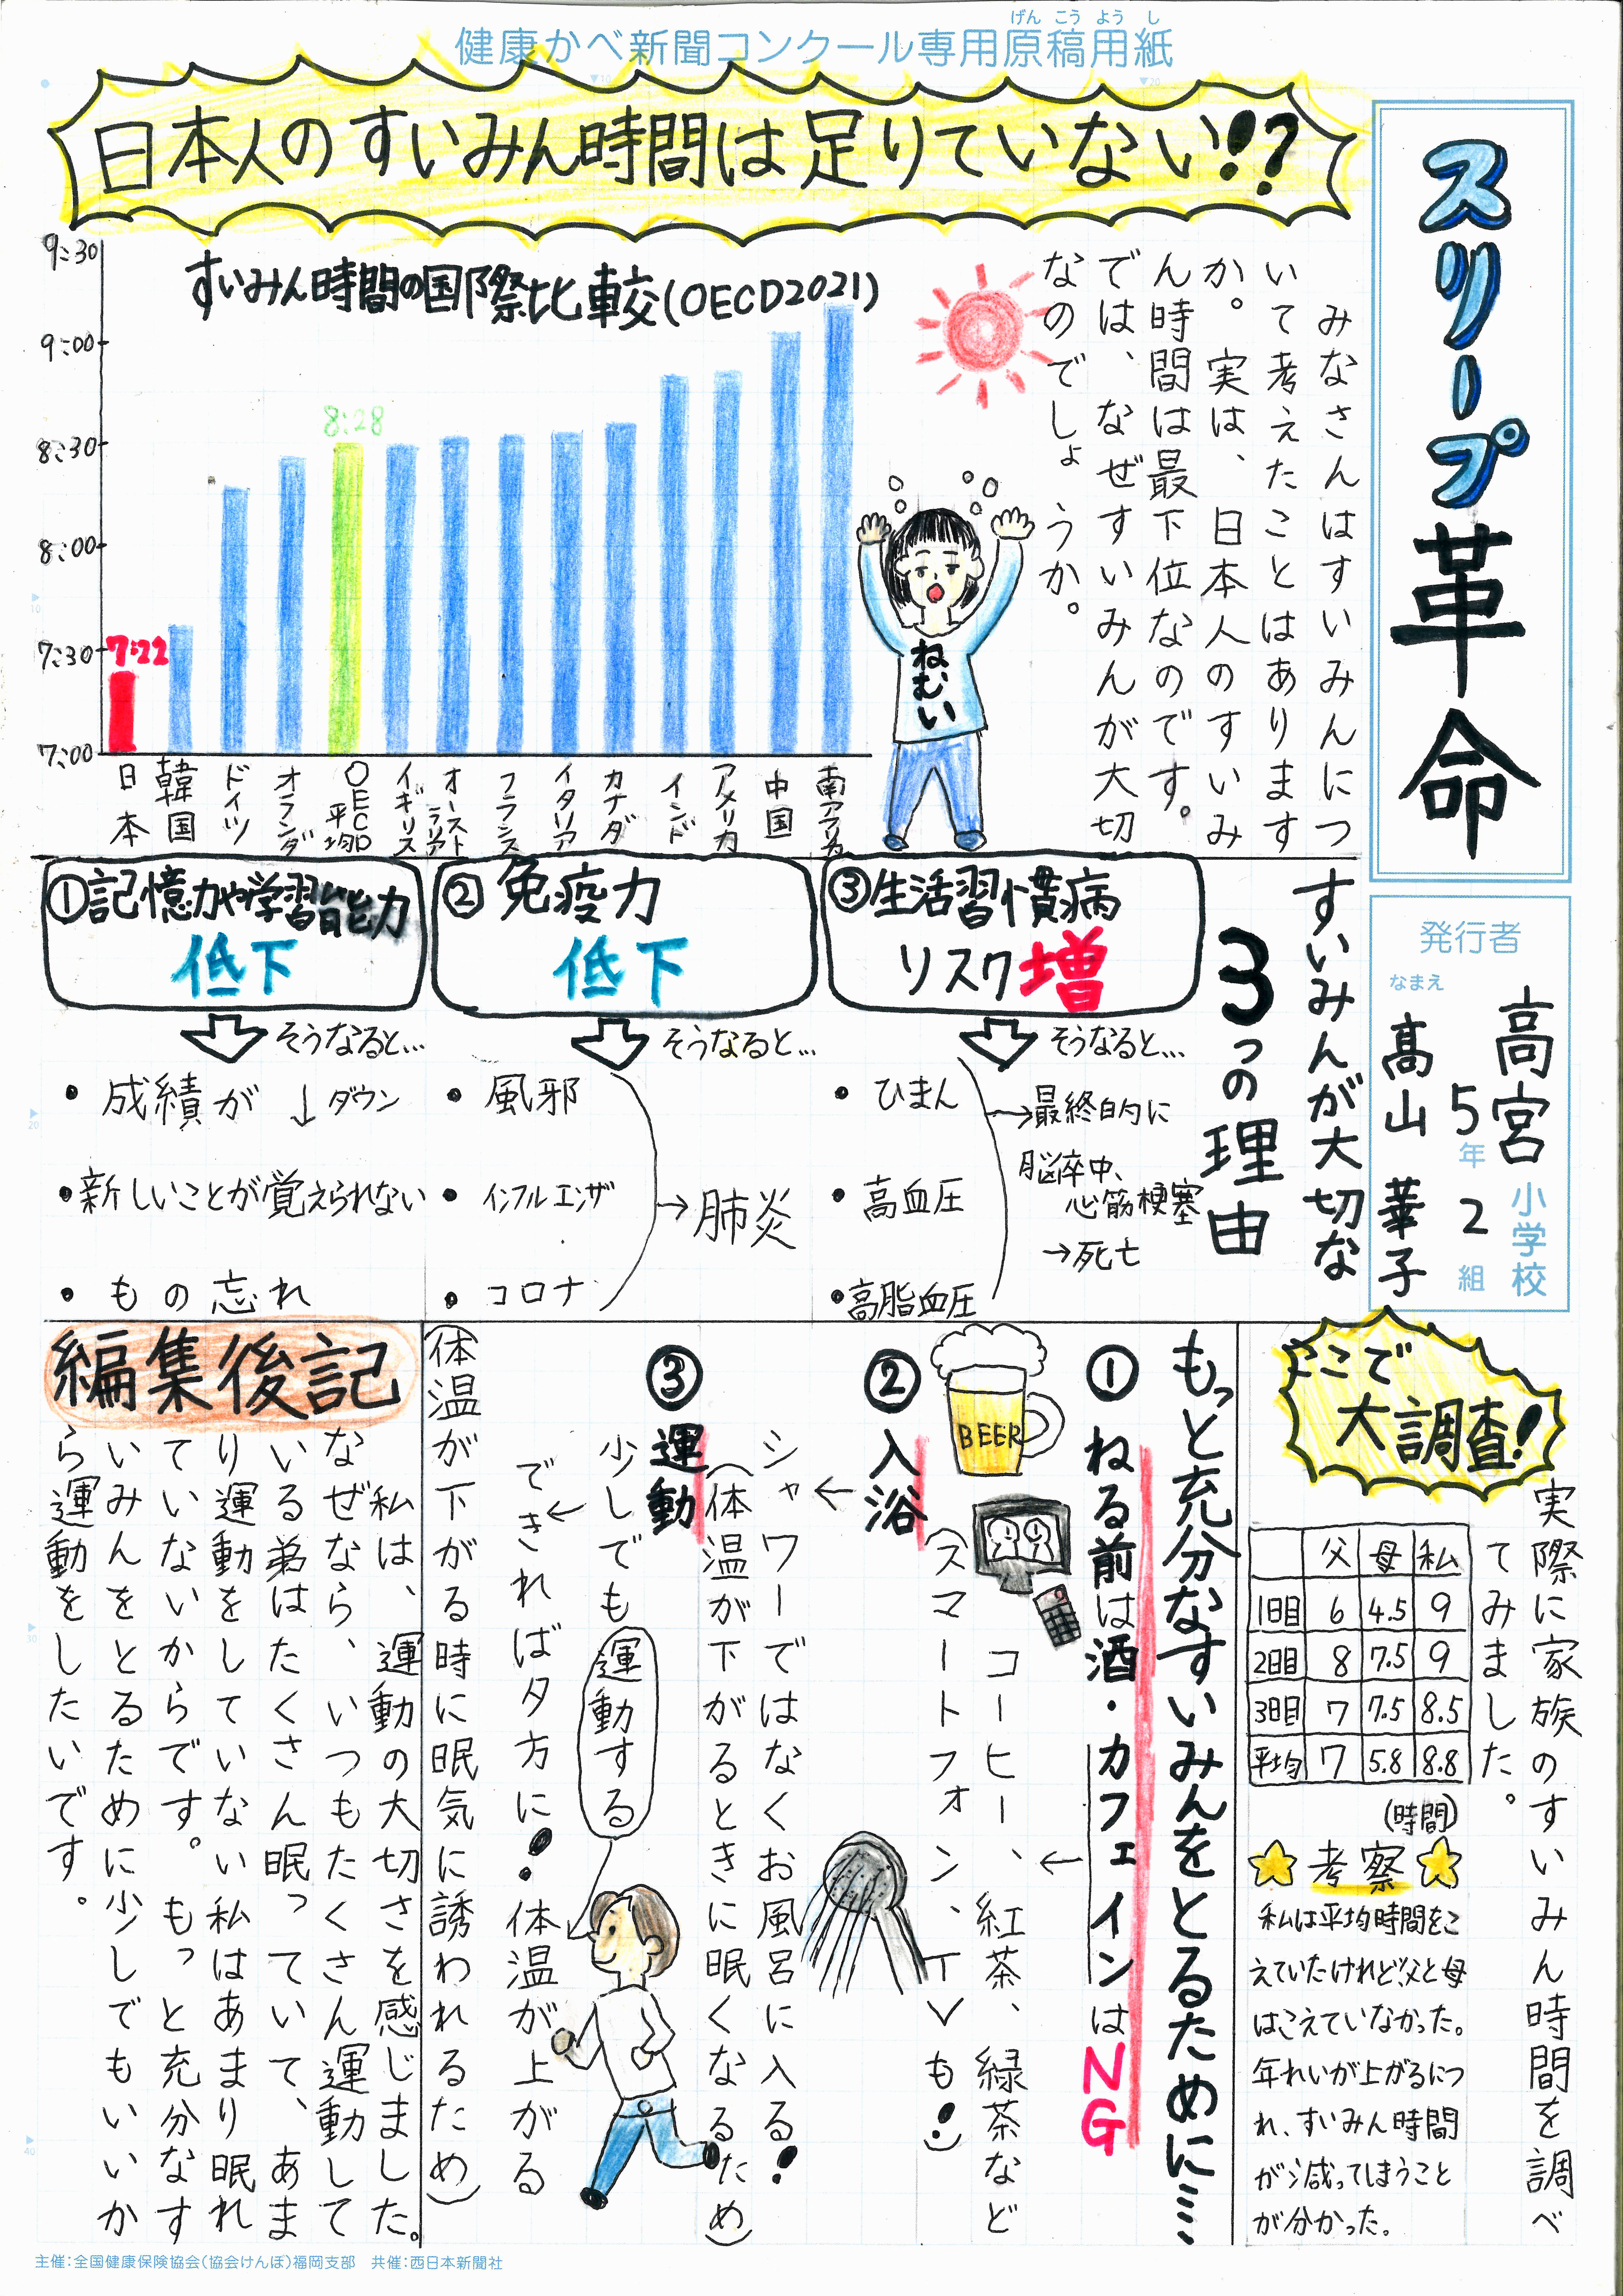 げんこうようし
健康かべ新聞コンクール専用原稿用紙
スリープ革命
発行者
高宮小学校
5年2組
なまえ
髙山華子
日本人のすいみん時間は足りていない!?
みなさんはすいみんにつ
いて考えたことはあります
か。実は、日本人のすいみ
ん時間は最下位なのです。
では、なぜすいみんが大切
なのでしょうか。
ねむい
すいみん時間の国際比較(OECD2021)
9:30
9:00
8:30
8:00
7:30
7:00
7:22
8:28
日本
韓国
ドイツ
オランダ
OECD平均
イギリス
オーストラリア
フランス
イタリア
カナダ
インド
アメリカ
中国
南アフリカ
すいみんが大切な
3つの理由
①記憶力や学習能力
低下
そうなると…
・成績が↓ダウン
・新しいことが覚えられない
・もの忘れ
②免疫力
低下
そうなると…
・風邪
・インフルエンザ
・コロナ
→肺炎
③生活習慣病
リスク増
そうなると…
・ひまん
・高血圧
・高脂血圧
→最終的に
脳卒中、
心筋梗塞
→死亡
ここで
大調査!
実際に家族のすいみん時間を調べ
てみました。
父 母 私
1日目 6 4.5 9
2日目 8 7.5 9
3日目 7 7.5 8.5
平均 7 5.8 8.8
(時間)
考察
私は平均時間をこ
えていたけれど父と母
はこえていなかった。
年れいが上がるにつ
れ、すいみん時間
が減ってしまうこと
が分かった。
もっと充分なすいみんをとるために…
①ねる前は酒・カフェインはNG
←
コーヒー、紅茶、緑茶など
(スマートフォン、TVも!)
BEER
②入浴
←
シャワーではなくお風呂に入る!
(体温が下がるときに眠くなるため)
③運動
少しでも運動する
←
できれば夕方に!体温が上がる
(体温が下がる時に眠気に誘われるため)
編集後記
私は、運動の大切さを感じました。
なぜなら、いつもたくさん運動して
いる弟はたくさん眠っていて、あま
り運動をしていない私はあまり眠れ
ていないからです。もっと充分なす
いみんをとるために少しでもいいか
ら運動をしたいです。
主催:全国健康保険協会(協会けんぽ)福岡支部　共催:西日本新聞社